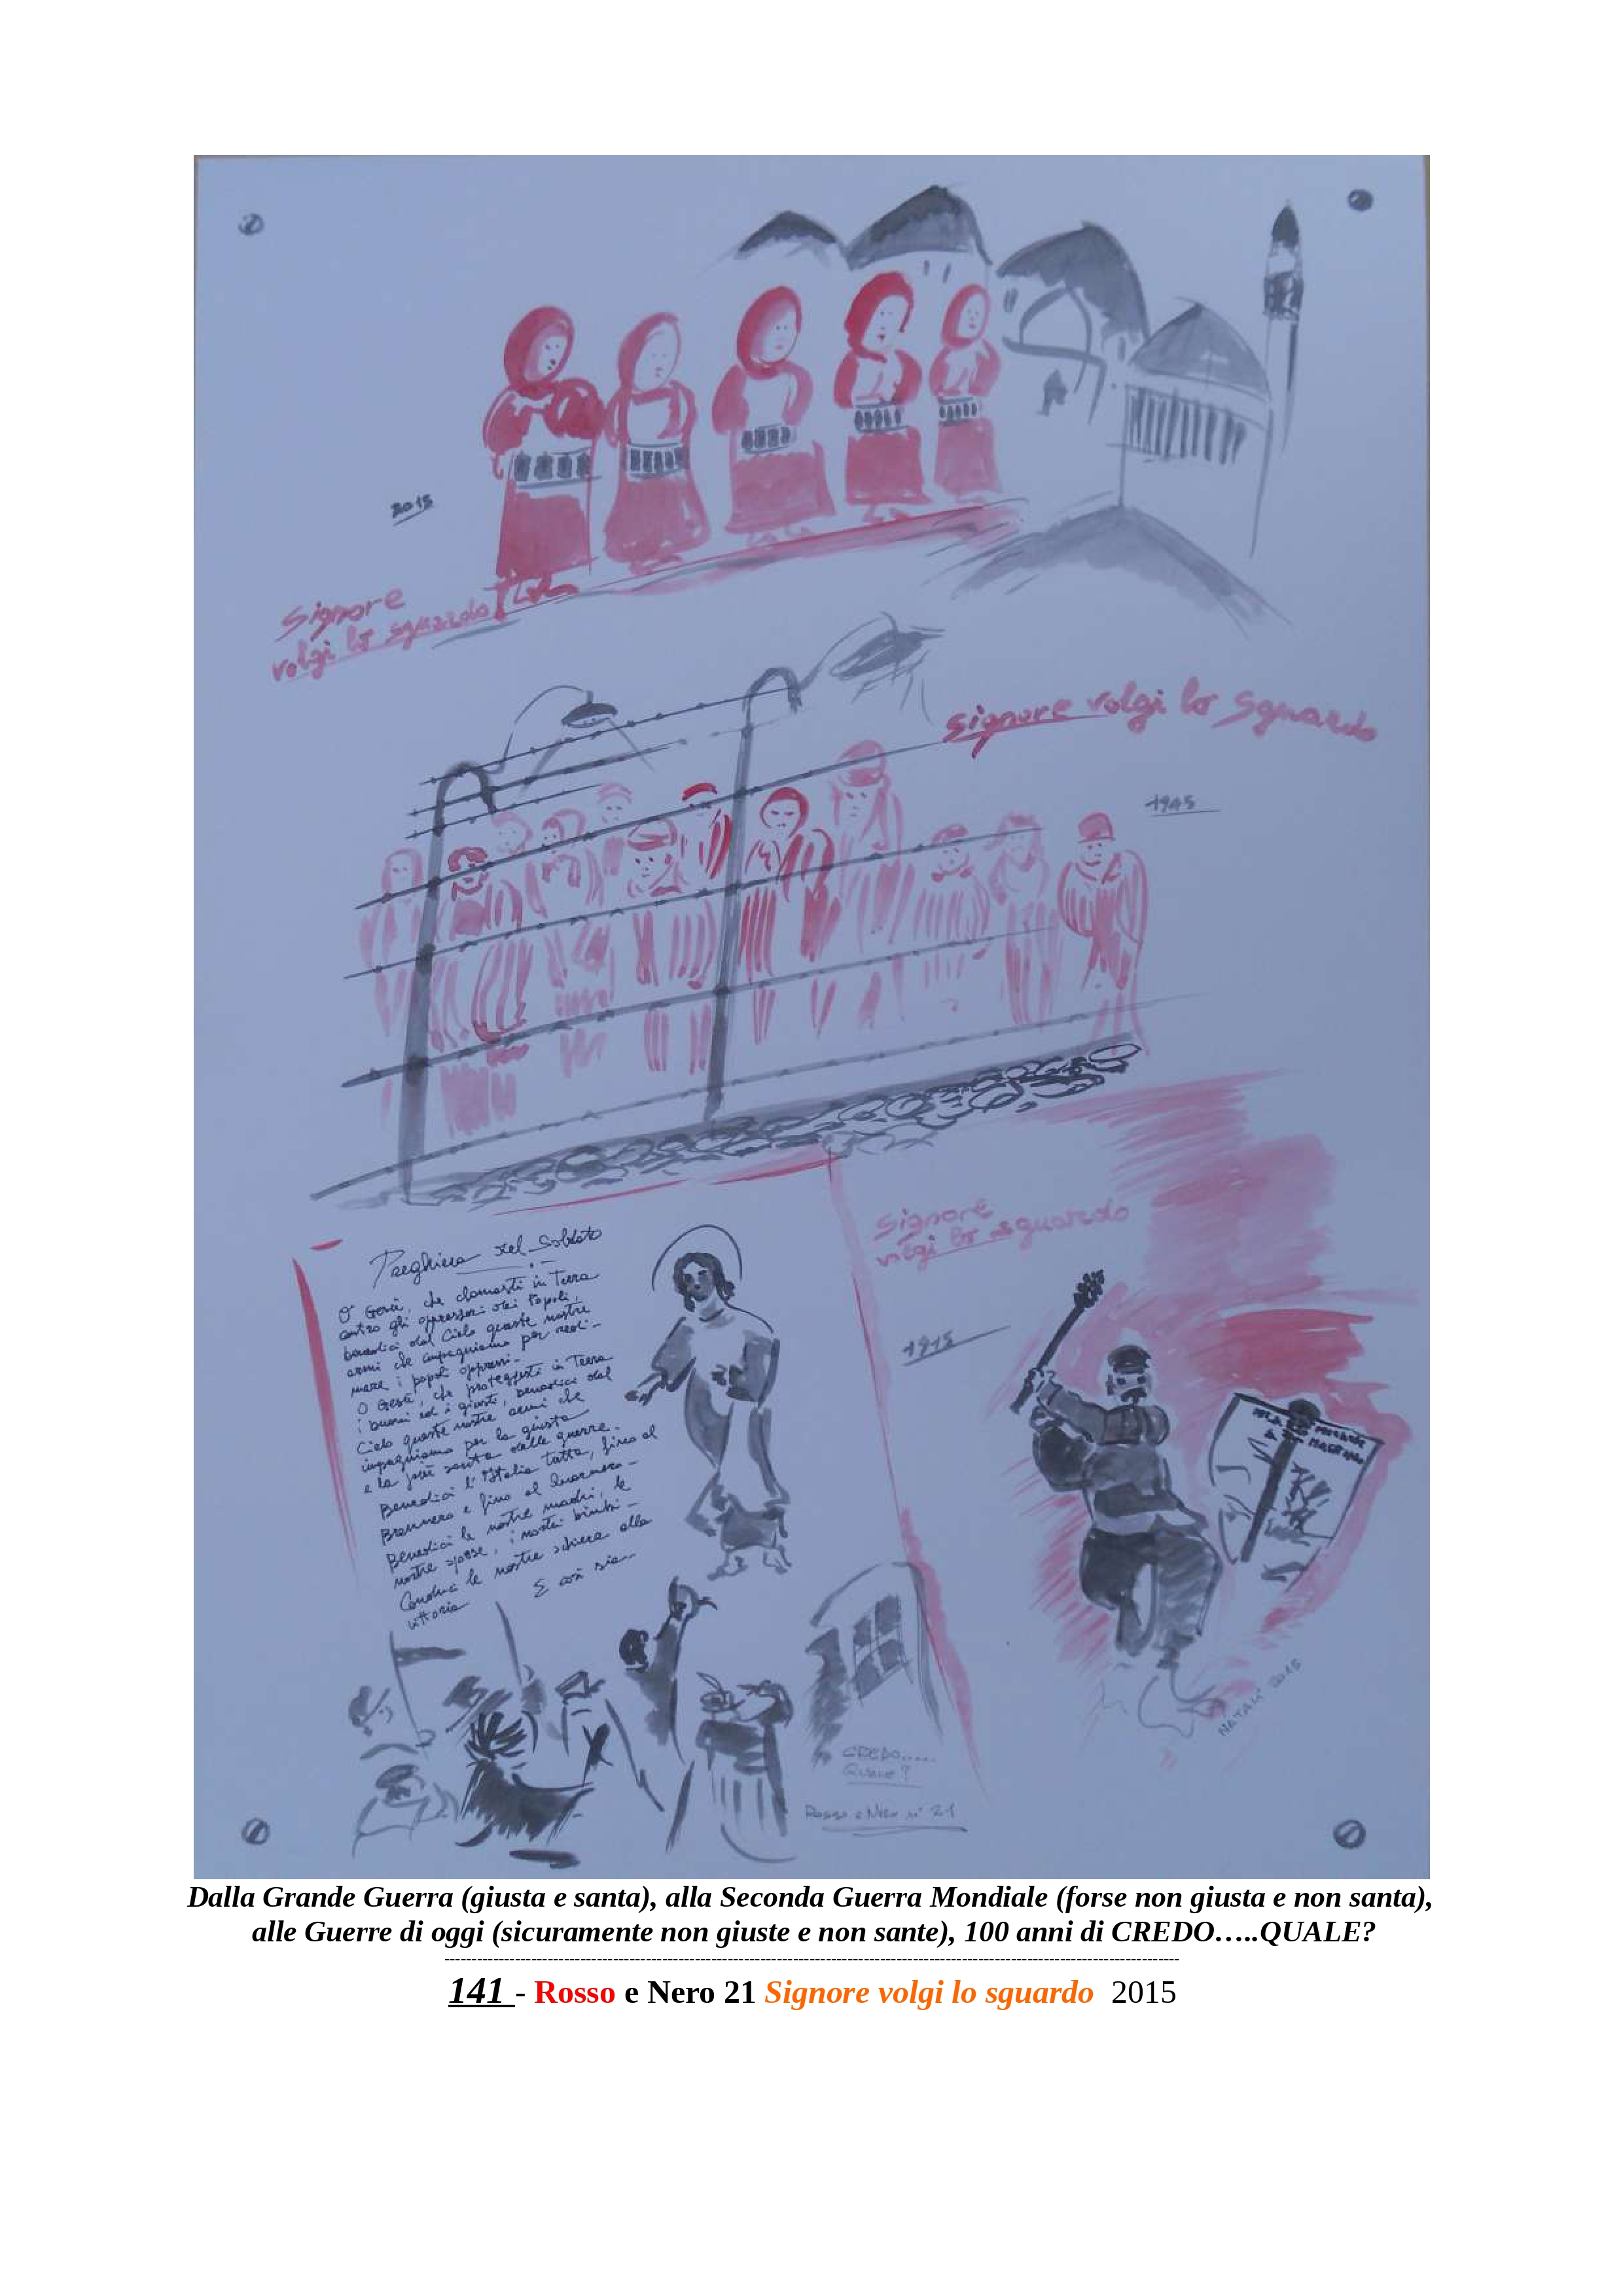 2015
Signore
volgi lo sguardo
Signore volgi lo sguardo
1945
Preghiera del Soldato
O Gesù, che domasti in Terra
contro gli oppressori dei Popoli,
benedici dal Cielo queste nostre
armi che impugniamo per redi-
mere i popoli oppressi.
O Gesù, che proteggesti in Terra
i buoni ed i giusti, benedici dal
Cielo queste nostre armi che
impugniamo per la giusta
e la più santa delle guerre.
Benedici l'Italia tutta, fino al
Brennero e fino al Quarnero.
Benedici le nostre madri, le
nostre spose, i nostri bimbi.
Conduci le nostre schiere alla
vittoria
E così sia
Signore
volgi lo sguardo
1915
NATALI 2015
CREDO.....
QUALE?
Rosso e Nero n° 21
Dalla Grande Guerra (giusta e santa), alla Seconda Guerra Mondiale (forse non giusta e non santa),
alle Guerre di oggi (sicuramente non giuste e non sante), 100 anni di CREDO…..QUALE?
141 - Rosso e Nero 21 Signore volgi lo sguardo 2015